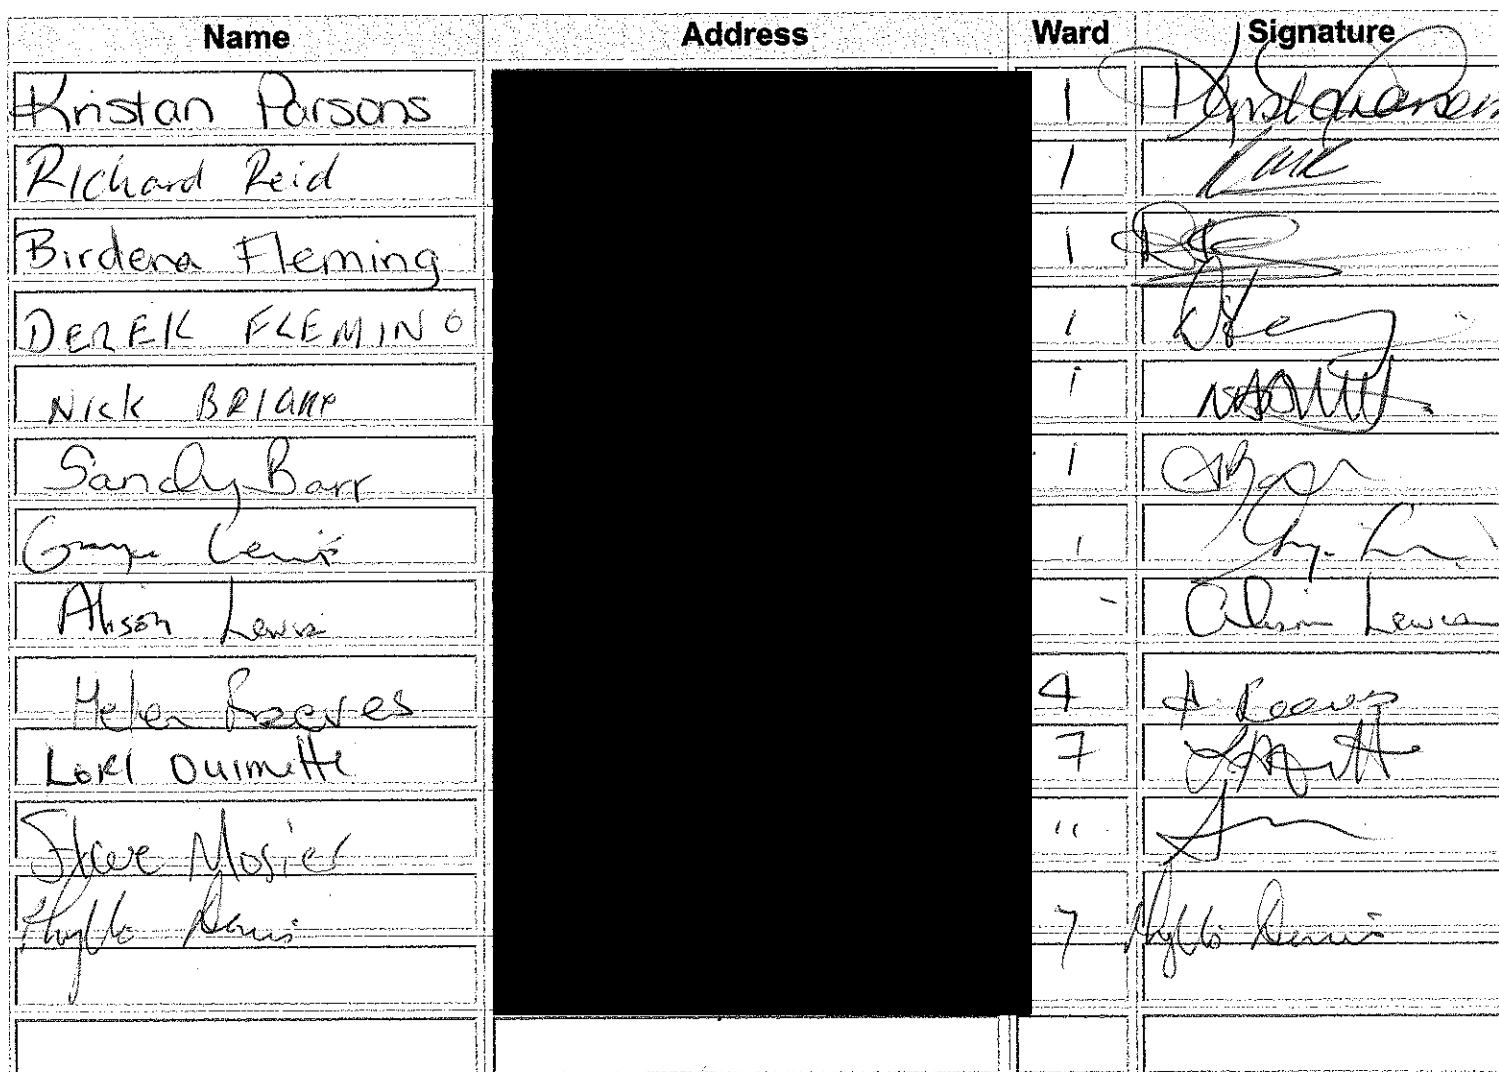 Name Address Ward Signature
Kristan Parsons 1
Richard Reid 1
Birdena Fleming 1
DEREK FLEMING 1
NICK 1
Sandy Barr 1 
Lewis 1
Alison Lewis - Alison Lewis
Helen Reeves 4 H Reeves
LORI OUIMETTE 7
Steve Mosier "
Phyllis Denis 7 Phyllis Denis